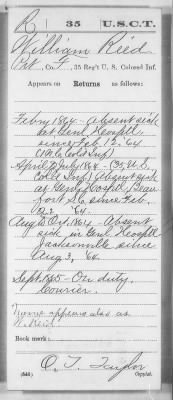 R 35 U.S.C.T.
William Reid
Pvt., Co. F, 35 Reg't U. S. Colored Inf.
Appears on
Returns as follows:
Feby 1864 - Absent sick
at Genl Hospll
since Feb 13, '64
April & July 1864 - (35 U.S.
Cold Inf) Absent sick
at Genl Hospl Beau
fort S.C. since Feb.
'64
Aug & Oct. 1864 - Absent
sick in Genl Hospll
Jacksonville since
Aug 3, '64
Sept. 1865 - On duty.
Courier.
Name appears also as
W. Reid
Book mark:
O. T. Taylor
(546) Copyist.